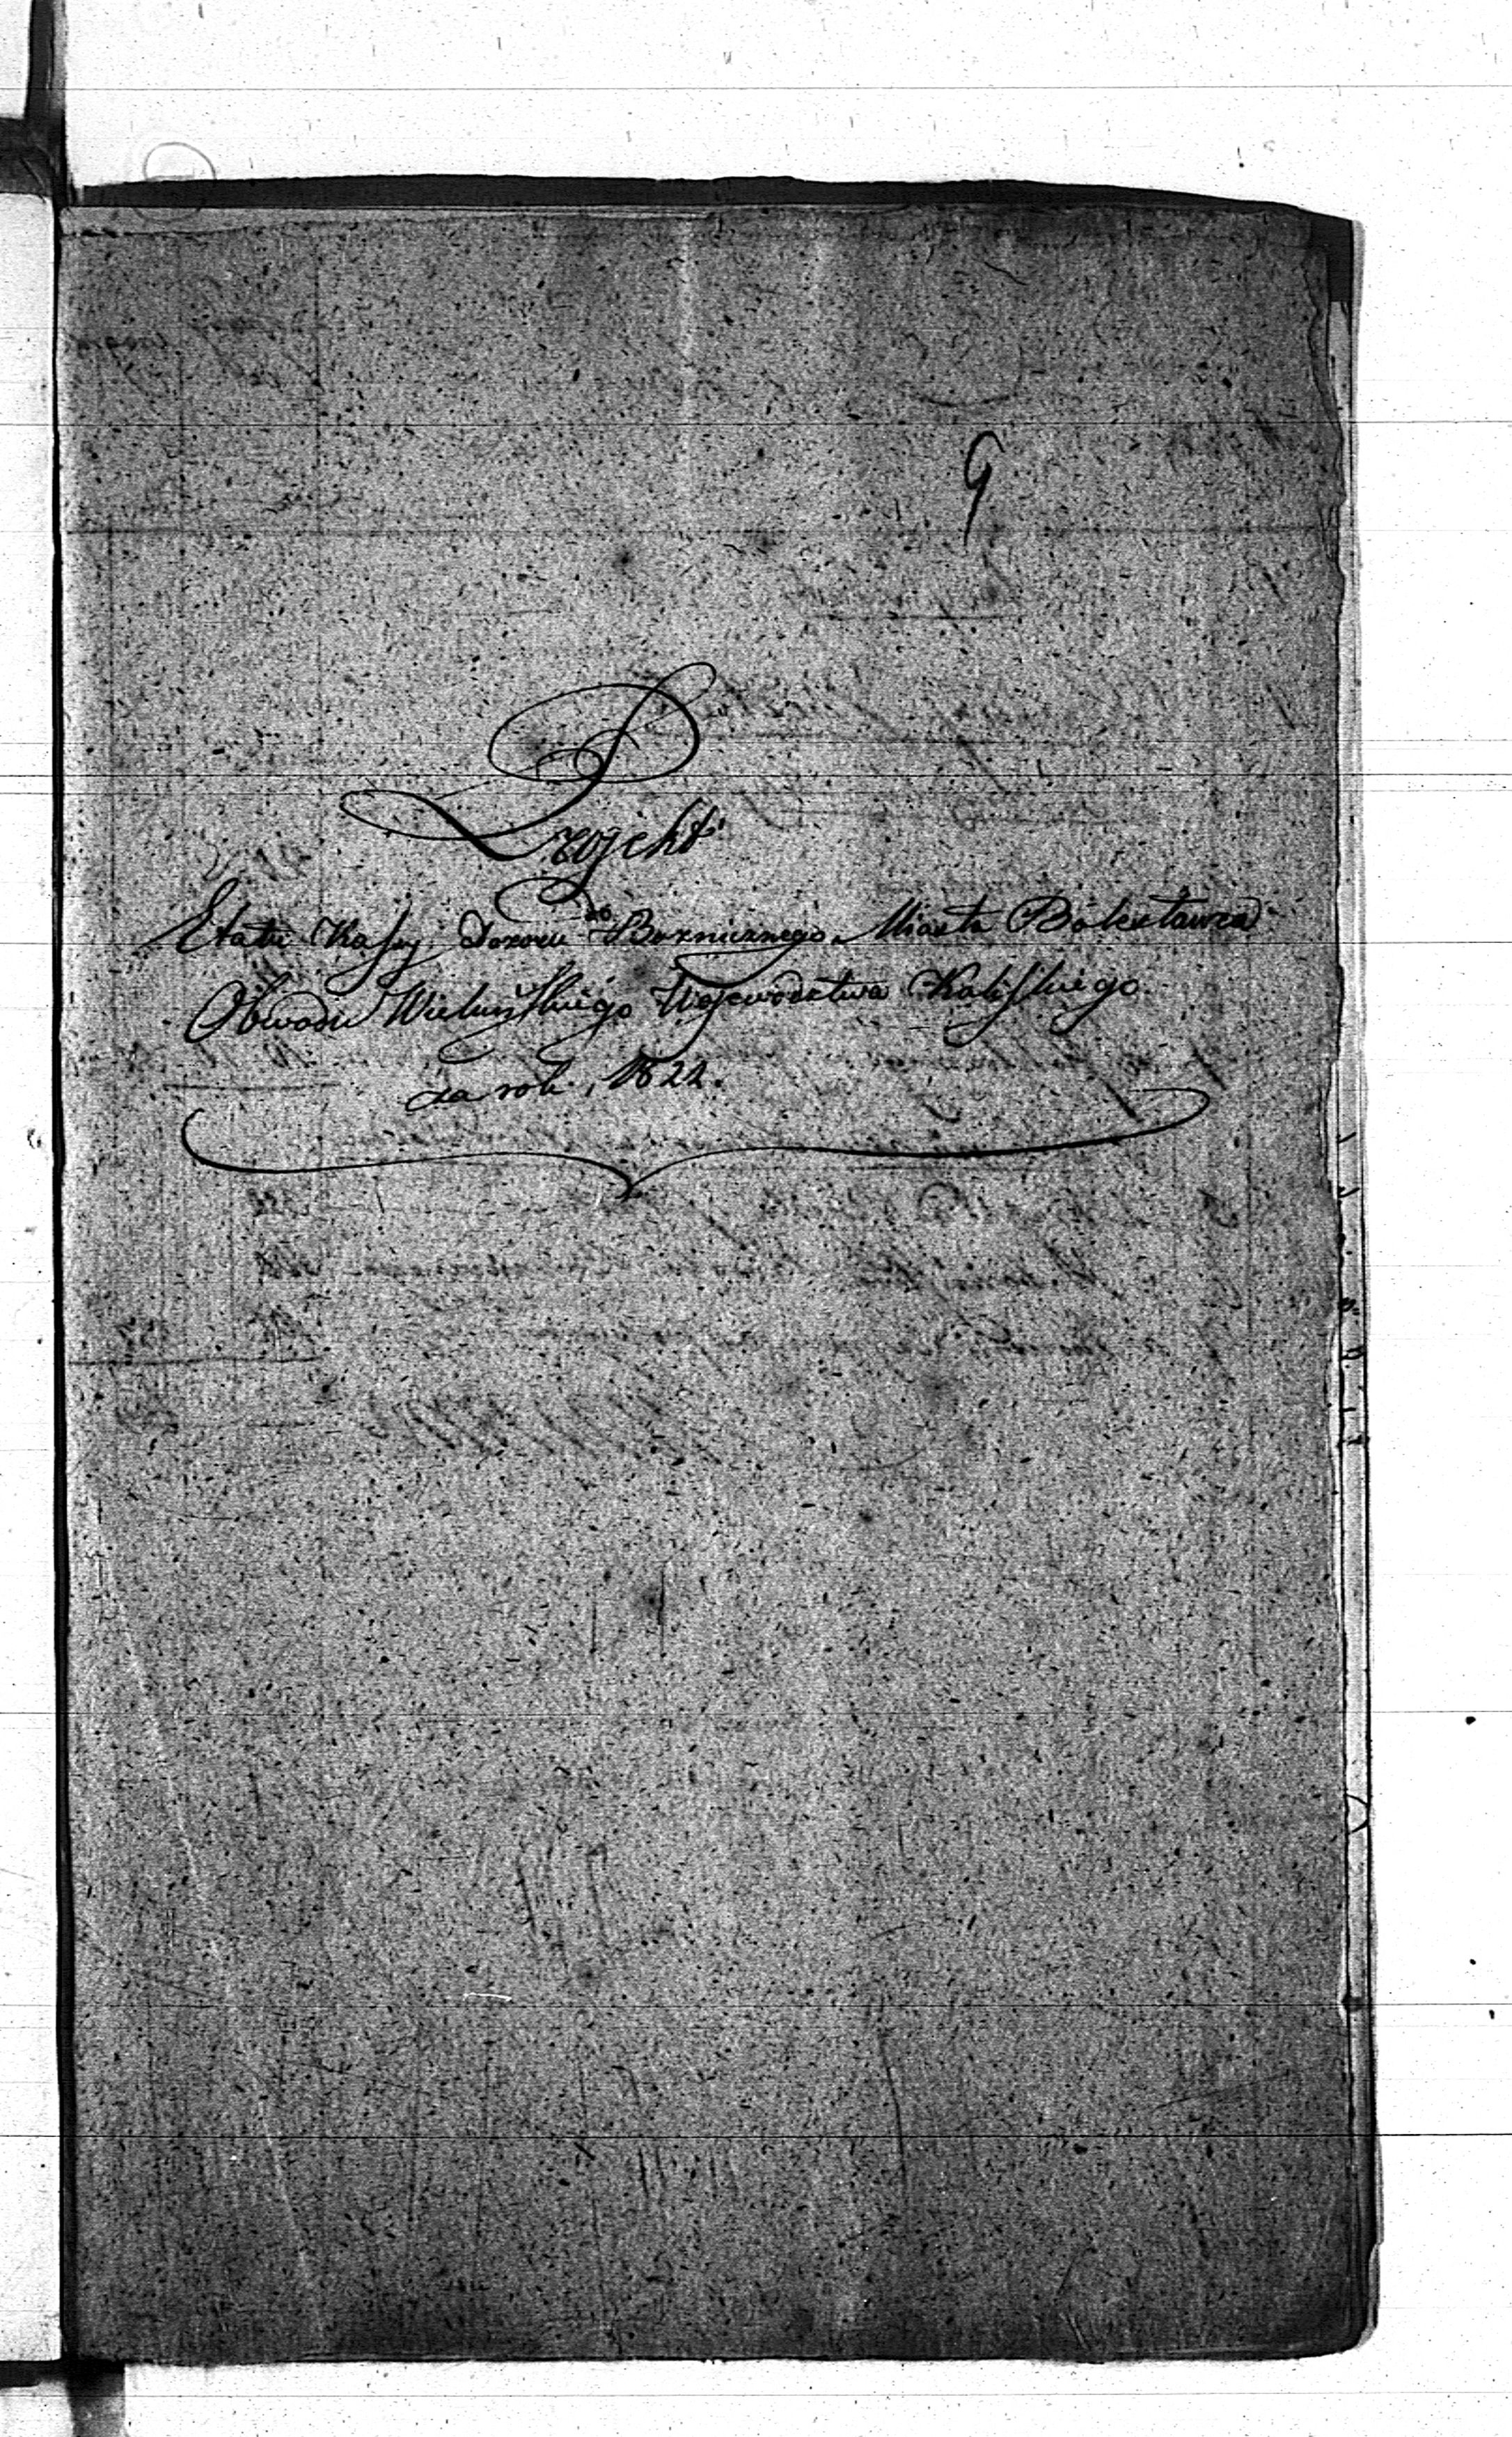 9
Projekt
Etatu Kassy Dozoru Bożnicznego Miasta Bolesławca
Obwodu Wieluńskiego Województwa Kaliskiego
za rok 1822.